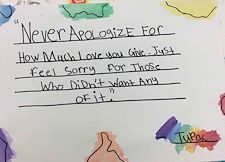 "Never Apologize For
How Much Love you Give. Just
Feel Sorry For Those
Who DiDn't Want Any
OF it."
Tupac